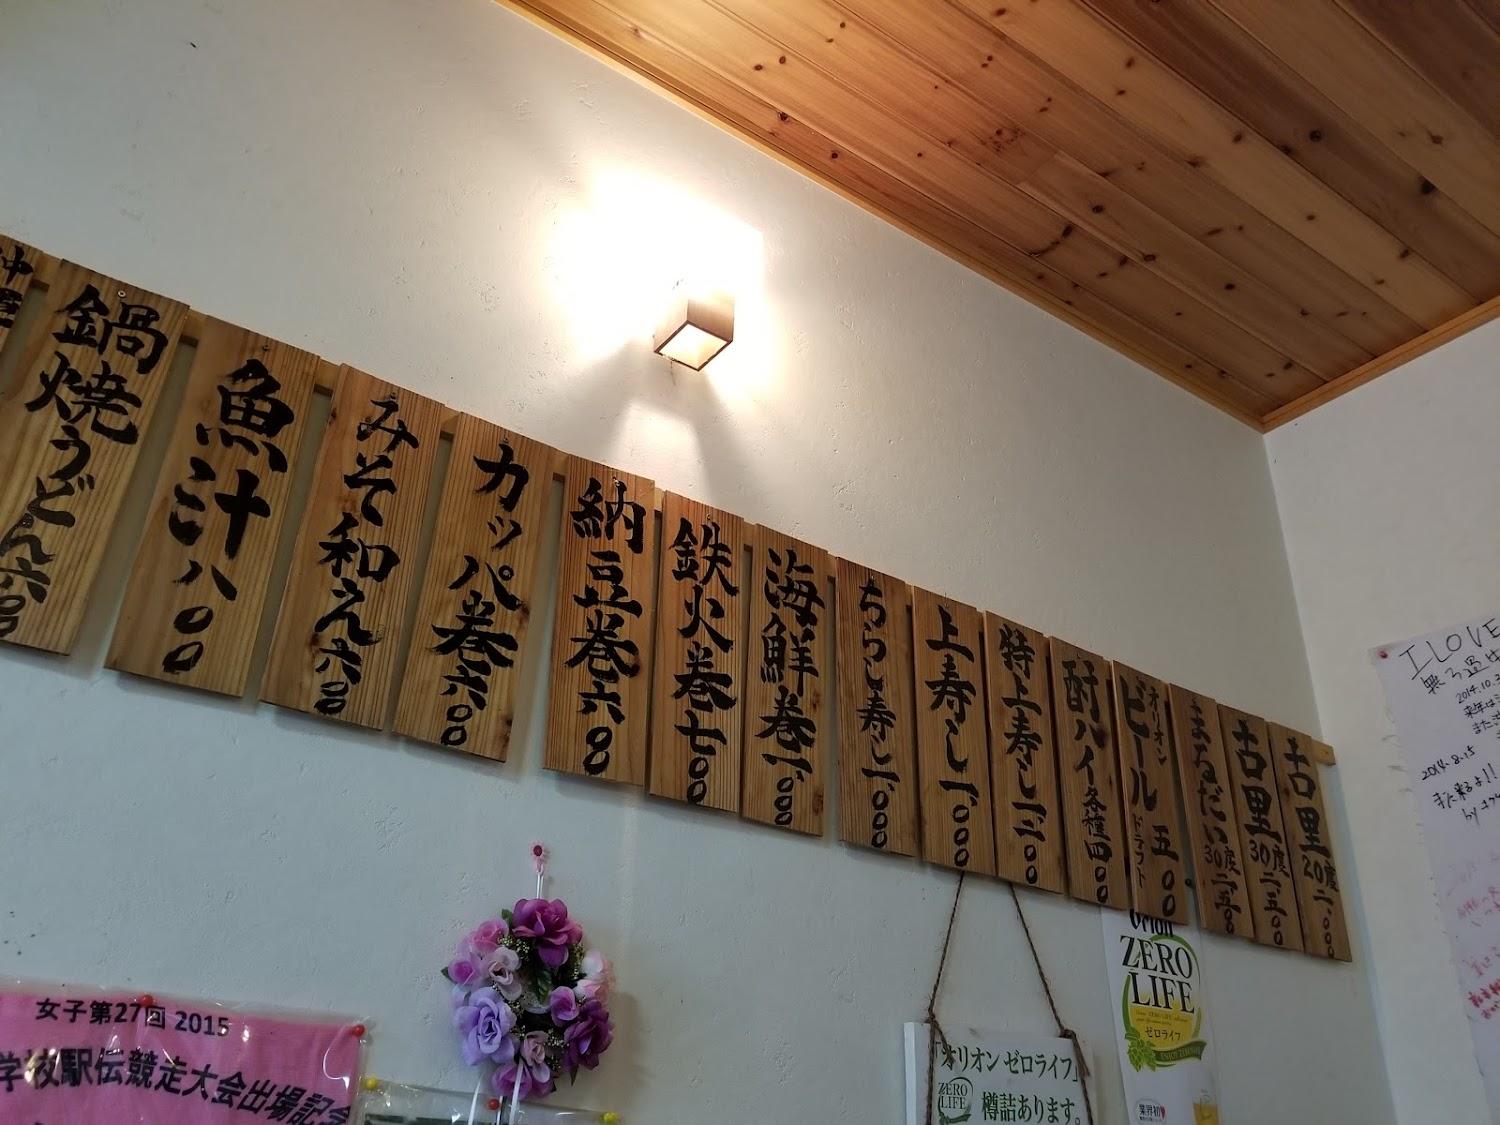 鍋焼うどん 六〇〇
魚汁 八〇〇
みそ和え 六〇〇
カッパ巻 六〇〇
納豆巻 六〇〇
鉄火巻 七〇〇
海鮮巻 一、〇〇〇
ちらし寿し 一、〇〇〇
上寿し 一、〇〇〇
特上寿し
酎ハイ 各種 四〇〇
オリオン
ビール 五〇〇
ドラフト
まるだい 30度 二、五〇〇
古里 30度 二、五〇〇
古里 20度 二、〇〇〇
女子第27回 2015
学校駅伝競走大会出場記念
「オリオン ゼロライフ」
ZERO
LIFE
樽詰あります。
Orion
ZERO
LIFE
ゼロライフ
業界初
I LOVE
2014.10.3
来年は
また
2014.8.15
また来るよ!!
by